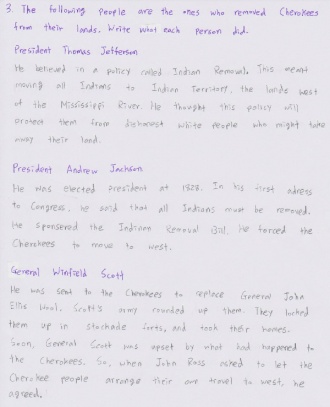 3. The following people are the ones who removed Cherokees
from their lands. Write what each person did.
President Thomas Jefferson
He believed in a policy called Indian Removal. This meant
moving all Indians to Indian Territory, the lands west
of the Mississippi River. He thought this policy will
protect them from dishonest white people who might take
away their land.
President Andrew Jackson
He was elected president at 1828. In his first adress
to Congress, he said that all Indians must be removed.
He sponsered the Indian Removal Bill. He forced the
Cherokees to move to west.
General Winfield Scott
He was sent to the Cherokees to replace General John
Ellis Wool. Scott's army rounded up them. They locked
them up in stockade forts, and took their homes.
Soon, General Scott was upset by what had happened to
the Cherokees. So, when John Ross asked to let the
Cherokee people arrange their own travel to west, he
agreed.